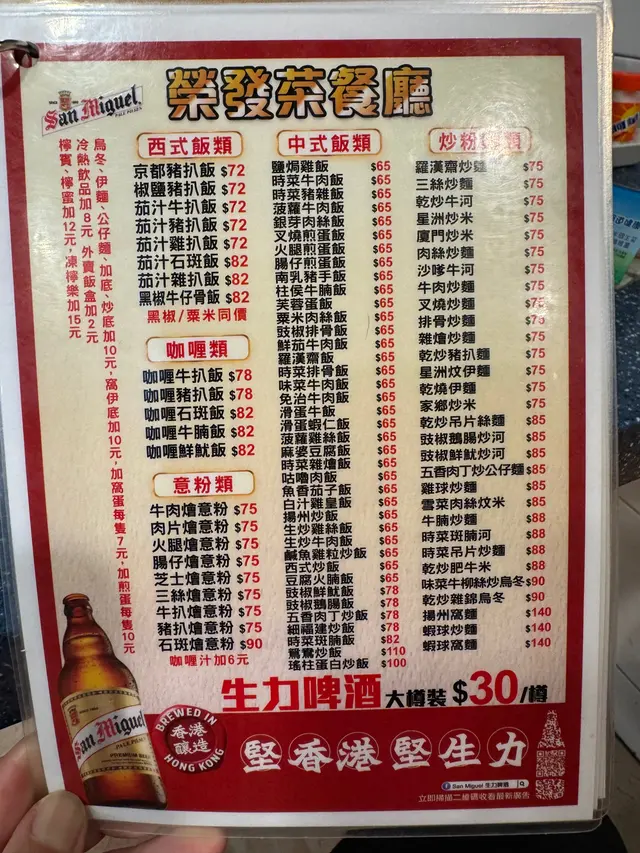 San Miguel
PALE PILSEN
榮發茶餐廳
烏冬、伊麵、公仔麵、加底、炒底加10元，窩伊底加10元，加窩蛋每隻7元，加煎蛋每隻10元
冷熱飲品加8元 外賣飯盒加2元
檸賓、檸蜜加12元，凍檸樂加15元
西式飯類
京都豬扒飯 $72
椒鹽豬扒飯 $72
茄汁牛扒飯 $72
茄汁豬扒飯 $72
茄汁雞扒飯 $72
茄汁石斑飯 $82
茄汁雜扒飯 $82
黑椒牛仔骨飯 $82
黑椒/粟米同價
咖喱類
咖喱牛扒飯 $78
咖喱豬扒飯 $78
咖喱石斑飯 $82
咖喱牛腩飯 $82
咖喱鮮魷飯 $82
意粉類
牛肉燴意粉 $75
肉片燴意粉 $75
火腿燴意粉 $75
腸仔燴意粉 $75
芝士燴意粉 $75
三絲燴意粉 $75
牛扒燴意粉 $75
豬扒燴意粉 $75
石斑燴意粉 $90
咖喱汁加6元
中式飯類
鹽焗雞飯 $65
時菜牛肉飯 $65
時菜豬雜飯 $65
菠蘿牛肉飯 $65
銀芽肉絲飯 $65
叉燒煎蛋飯 $65
火腿煎蛋飯 $65
腸仔煎蛋飯 $65
南乳豬手飯 $65
柱侯牛腩飯 $65
芙蓉蛋飯 $65
粟米肉絲飯 $65
豉椒排骨飯 $65
鮮茄牛肉飯 $65
羅漢齋飯 $65
時菜排骨飯 $65
味菜牛肉飯 $65
免治牛肉飯 $65
滑蛋牛飯 $65
滑蛋蝦仁飯 $65
菠蘿雞絲飯 $65
麻婆豆腐飯 $65
時菜雜燴飯 $65
咕嚕肉飯 $65
魚香茄子飯 $65
白汁雞皇飯 $65
揚州炒飯 $65
生炒雞絲飯 $65
生炒牛肉飯 $65
鹹魚雞粒炒飯 $65
西式炒飯 $65
豆腐火腩飯 $65
豉椒鮮魷飯 $78
豉椒鵝腸飯 $78
五香肉丁炒飯 $78
細福建炒飯 $78
時菜斑腩飯 $82
鴛鴦炒飯 $110
瑤柱蛋白炒飯 $100
炒粉麵類
羅漢齋炒麵 $75
三絲炒麵 $75
乾炒牛河 $75
星洲炒米 $75
廈門炒米 $75
肉絲炒麵 $75
沙嗲牛河 $75
牛肉炒麵 $75
叉燒炒麵 $75
排骨炒麵 $75
雜燴炒麵 $75
乾炒豬扒麵 $75
星洲炆伊麵 $75
乾燒伊麵 $75
家鄉炒米 $75
乾炒吊片絲麵 $85
豉椒鵝腸炒河 $85
豉椒鮮魷炒河 $85
五香肉丁炒公仔麵 $85
雞球炒麵 $85
雪菜肉絲炆米 $85
牛腩炒麵 $88
時菜斑腩河 $88
時菜吊片炒麵 $88
乾炒肥牛米 $88
味菜牛柳絲炒烏冬 $90
乾炒雜錦烏冬 $90
揚州窩麵 $140
蝦球炒麵 $140
蝦球窩麵 $140
生力啤酒 大樽裝 $30/樽
San Miguel
PALE PILSEN
PREMIUM BEER
BREWED IN
香港
釀造
HONG KONG
堅香港堅生力
San Miguel 生力啤酒
立即掃描二維碼收看最新廣告